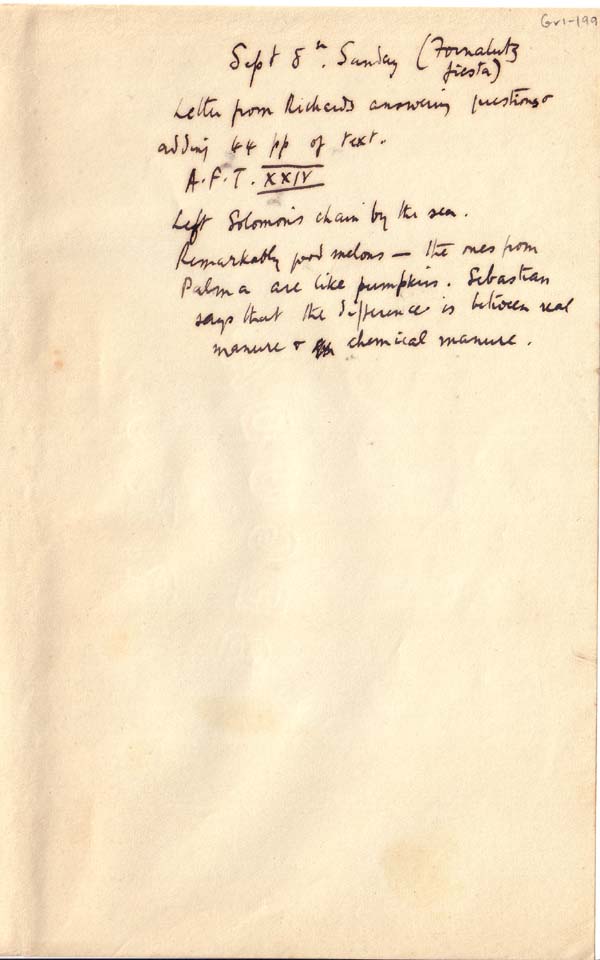 Gv1-199
Sept 8th. Sunday (Fornalutz
fiesta)
Letter from Richards answering questions &
adding 44 pp of text.
A.F.T. XXIV
Left Solomon's chain by the sea.
Remarkably good melons — the ones from
Palma are like pumpkins. Sebastian
says that the difference is between real
manure & chemical manure.